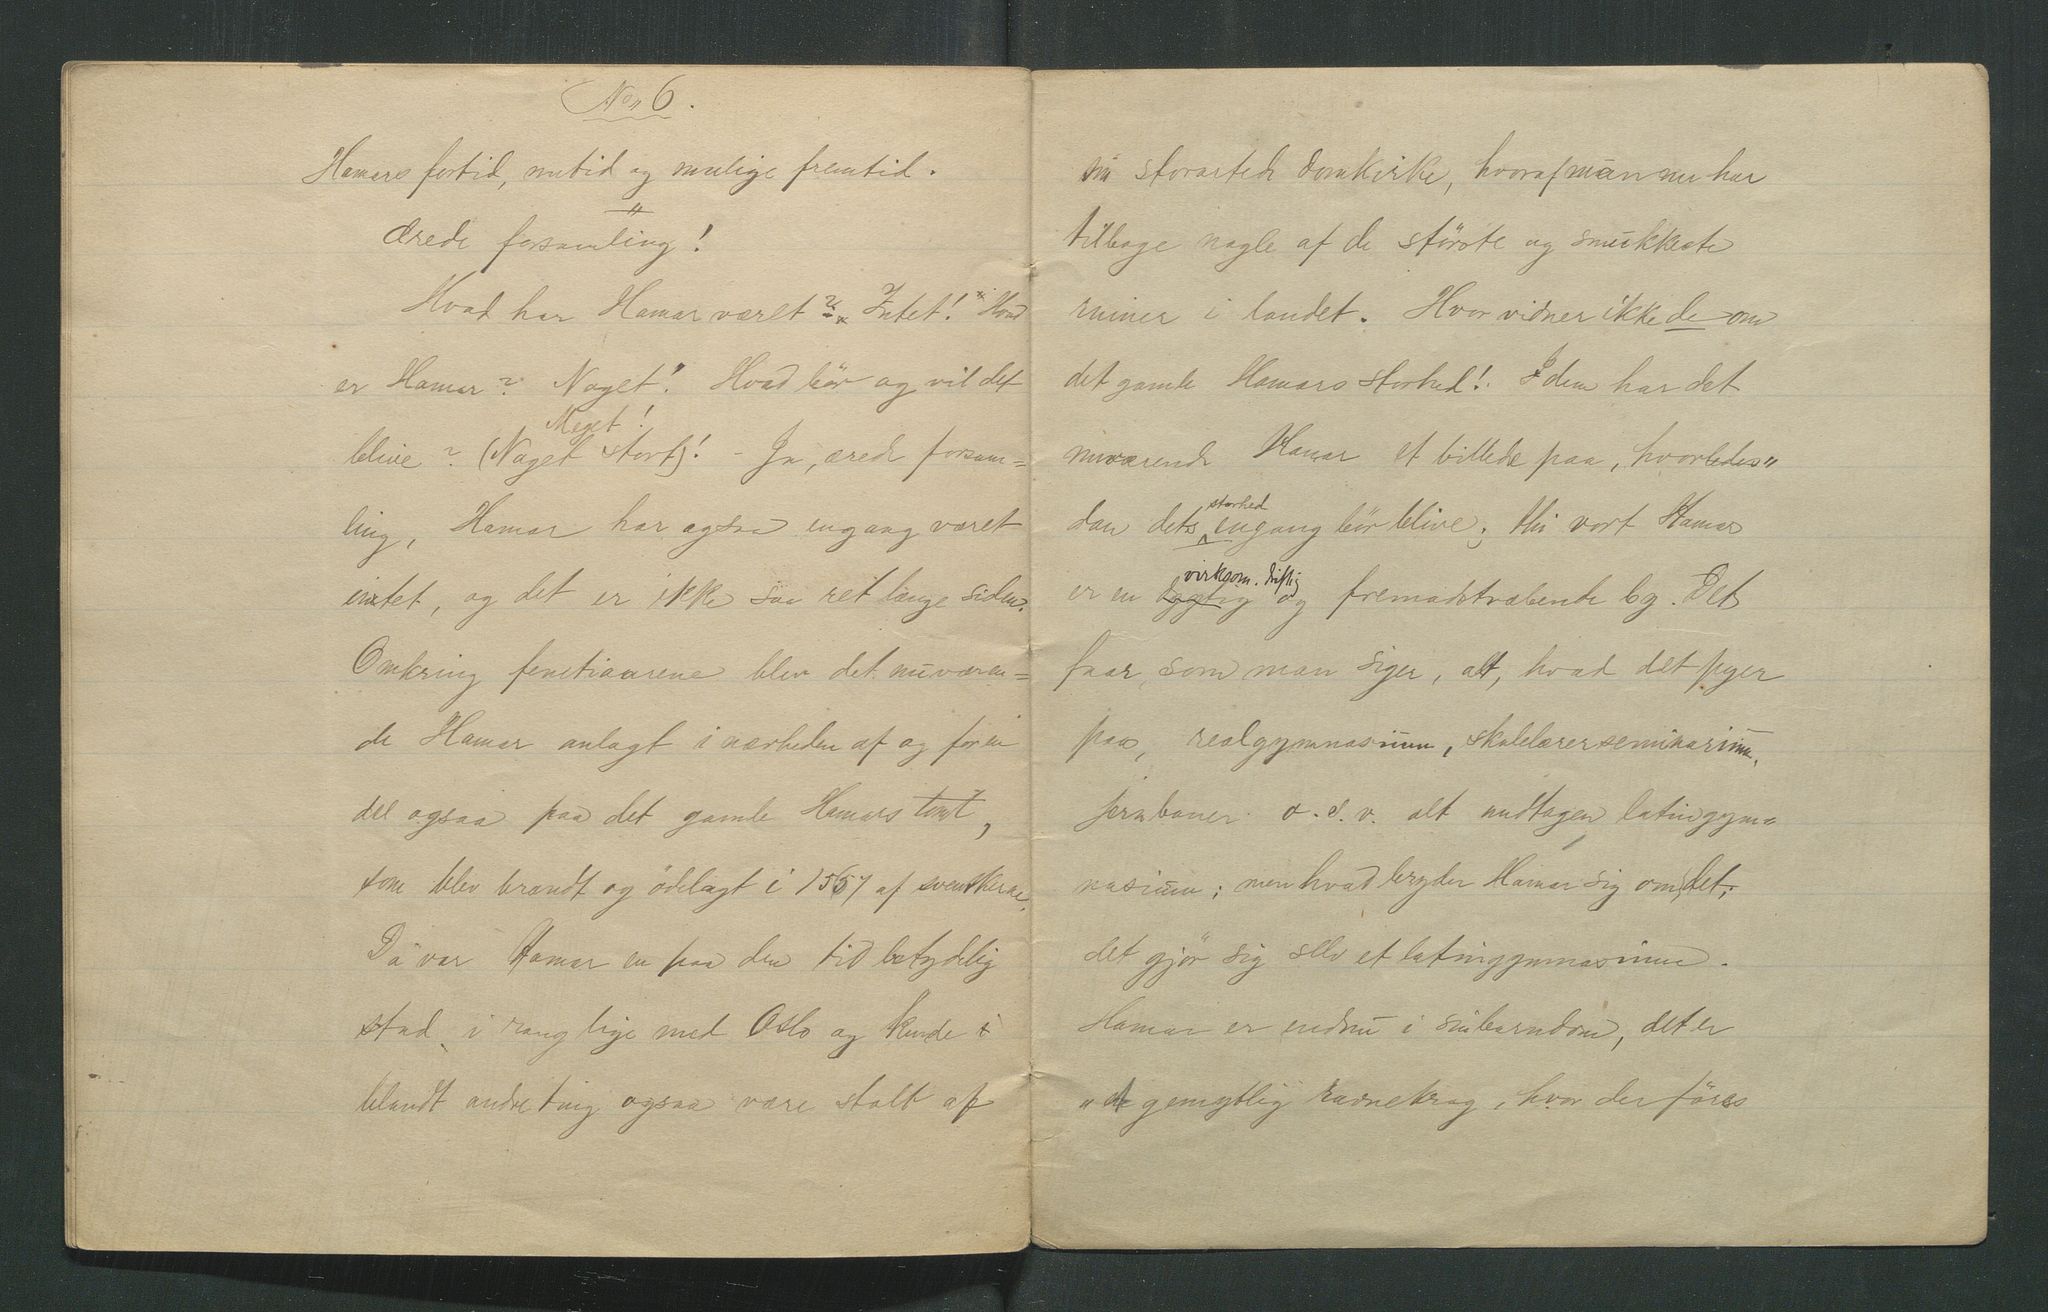 No 6.
Hamars fortid, nutid og mulige fremtid.
Ærede forsamling!
Hvad har Hamar været? "Intet!" Hvad
er Hamar? Noget! Hvad bör og vil det
Meget!
blive? (Noget stort)! - Ja, ærede forsam=
ling, Hamar har ogsaa engang været
intet, og det er ikke saa ret længe siden.
Omkring femtiaarene blev det nuværen=
de Hamar anlagt i nærheden af og for en
del ogsaa paa det gamle Hamars tomt,
som blev brændt og ödelagt i 1567 af svenskerne.
Da var Hamar en paa den tid betydelig
stad, i rang lige med Oslo og kunde
blandt andre ting ogsaa være stolt af
sin storartede domkirke, hvoraf man nu har
tilbage nogle af de störste og smukkeste
ruiner i landet. Hvor vidner ikke de om
det gamle Hamars storhed! I dem har det
nuværende Hamar et billede paa, hvorledes"
storhed
dan dets engang bör blive; thi vort Hamar
virksom. driftig
er en og fremadstræbende by. Det
faar, som man siger, alt, hvad det peger
paa, realgymnasium, skolelærerseminarium,
jernbaner o.s.v. alt undtagen latingym=
nasium; men hvad bryder Hamar sig om det;
det gjör sig selv et latingymnasium.
Hamar er endnu i sin barndom, det er
gemytlig ravnekrog, hvor der föres